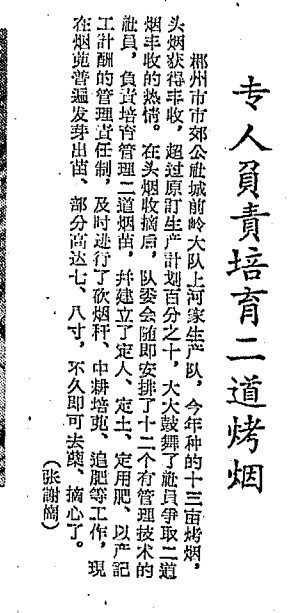 专人負責培育二道烤烟
郴州市市郊公社城前岭大队上河家生产队，今年种的十三亩烤烟，
头烟获得丰收，超过原訂生产計划百分之十，大大鼓舞了社員爭取二道
烟丰收的热情。在头烟收摘后，队委会随即安排了十二个有管理技术的
社員，負責培育管理二道烟苗，幷建立了定人、定土、定用肥、以产記
工計酬的管理責任制，及时进行了砍烟秆、中耕培蔸、追肥等工作，現
在烟蔸普遍发芽出苗、部分高达七、八寸，不久即可去蘖、摘心了。
（张謝）